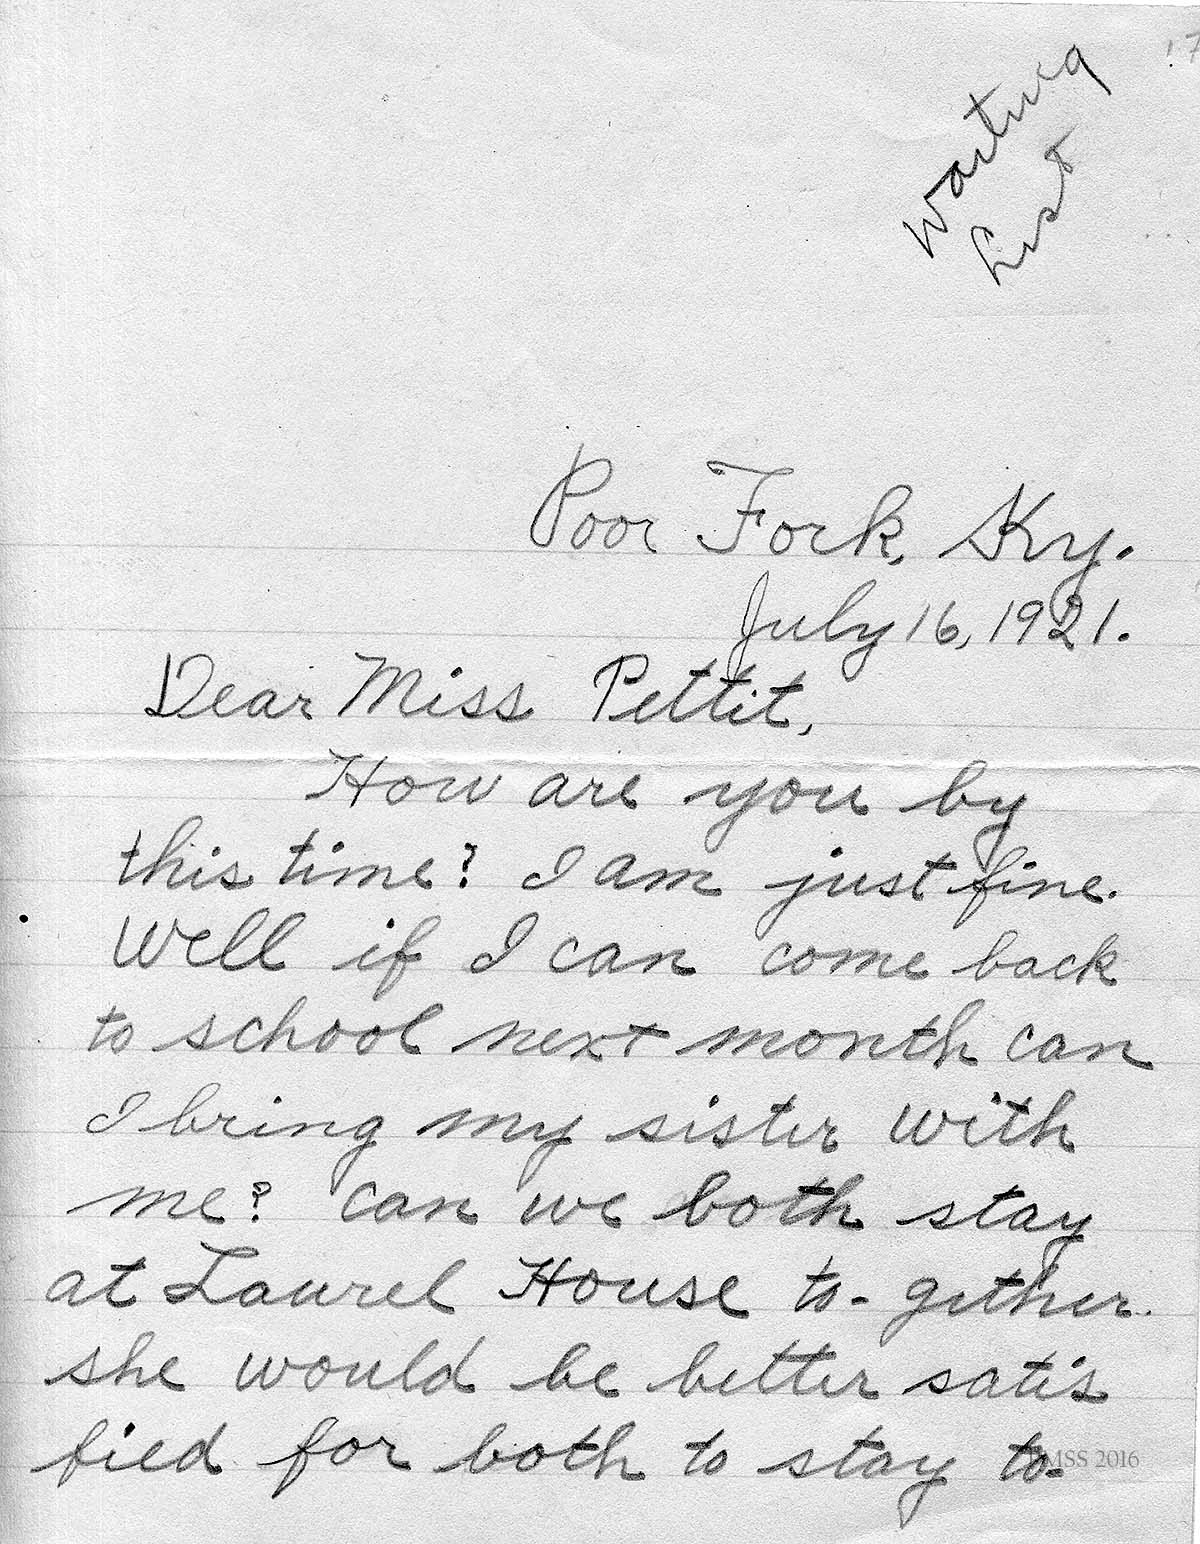 17
Waiting
List
Poor Fork, Ky.
July 16, 1921.
Dear Miss Pettit,
How are you by
this time? I am just fine.
Well if I can come back
to school next month can
I bring my sister with
me? can we both stay
at Laurel House to-gether.
she would be better satis
fied for both to stay to-
MSS 2016